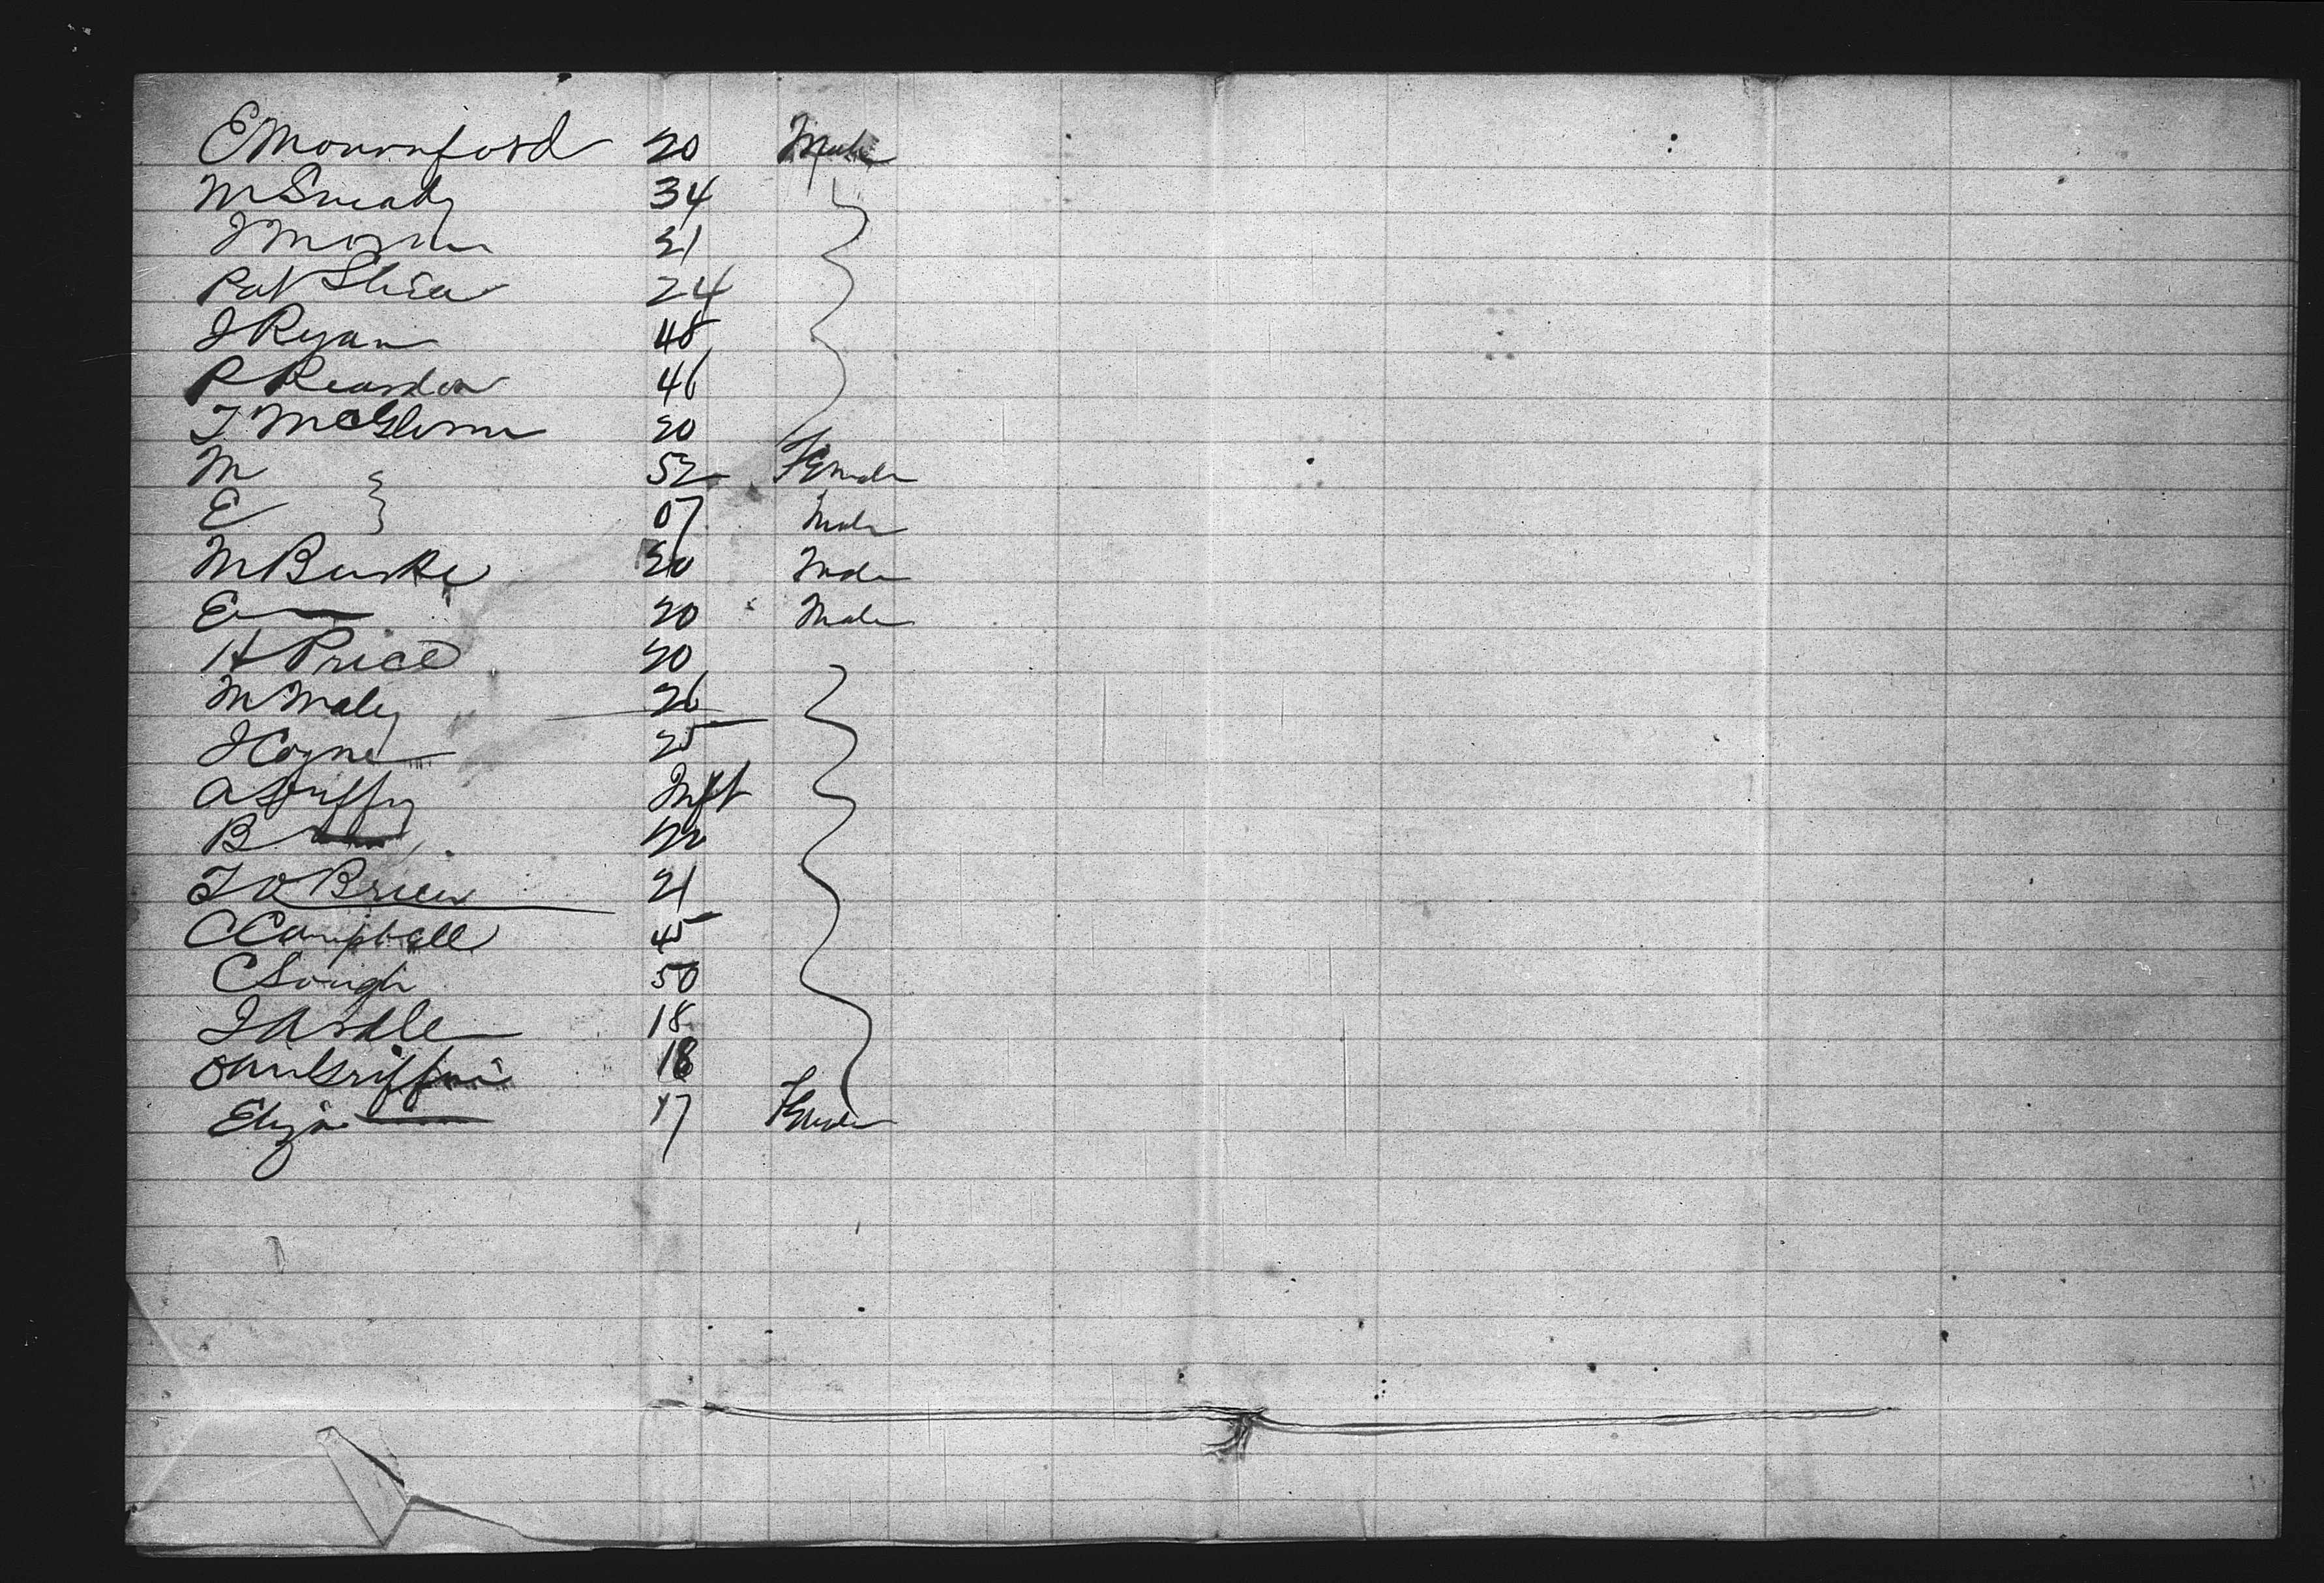 E Mounnford 20 Male
M 34
J Moran 21
Pat Shea 24
J Ryan 48
P Reardon 46
T McGlinn 20
M 52 Female
E 07 Male
M Burke 20 Male
E 20 Male
H Price 20
M Maley 26
J Coyne 25
A Duffy Inft
B
T O Brien 21
C Campbell 45
C 50
J 18
Griffin 18
Eliza 17 Female